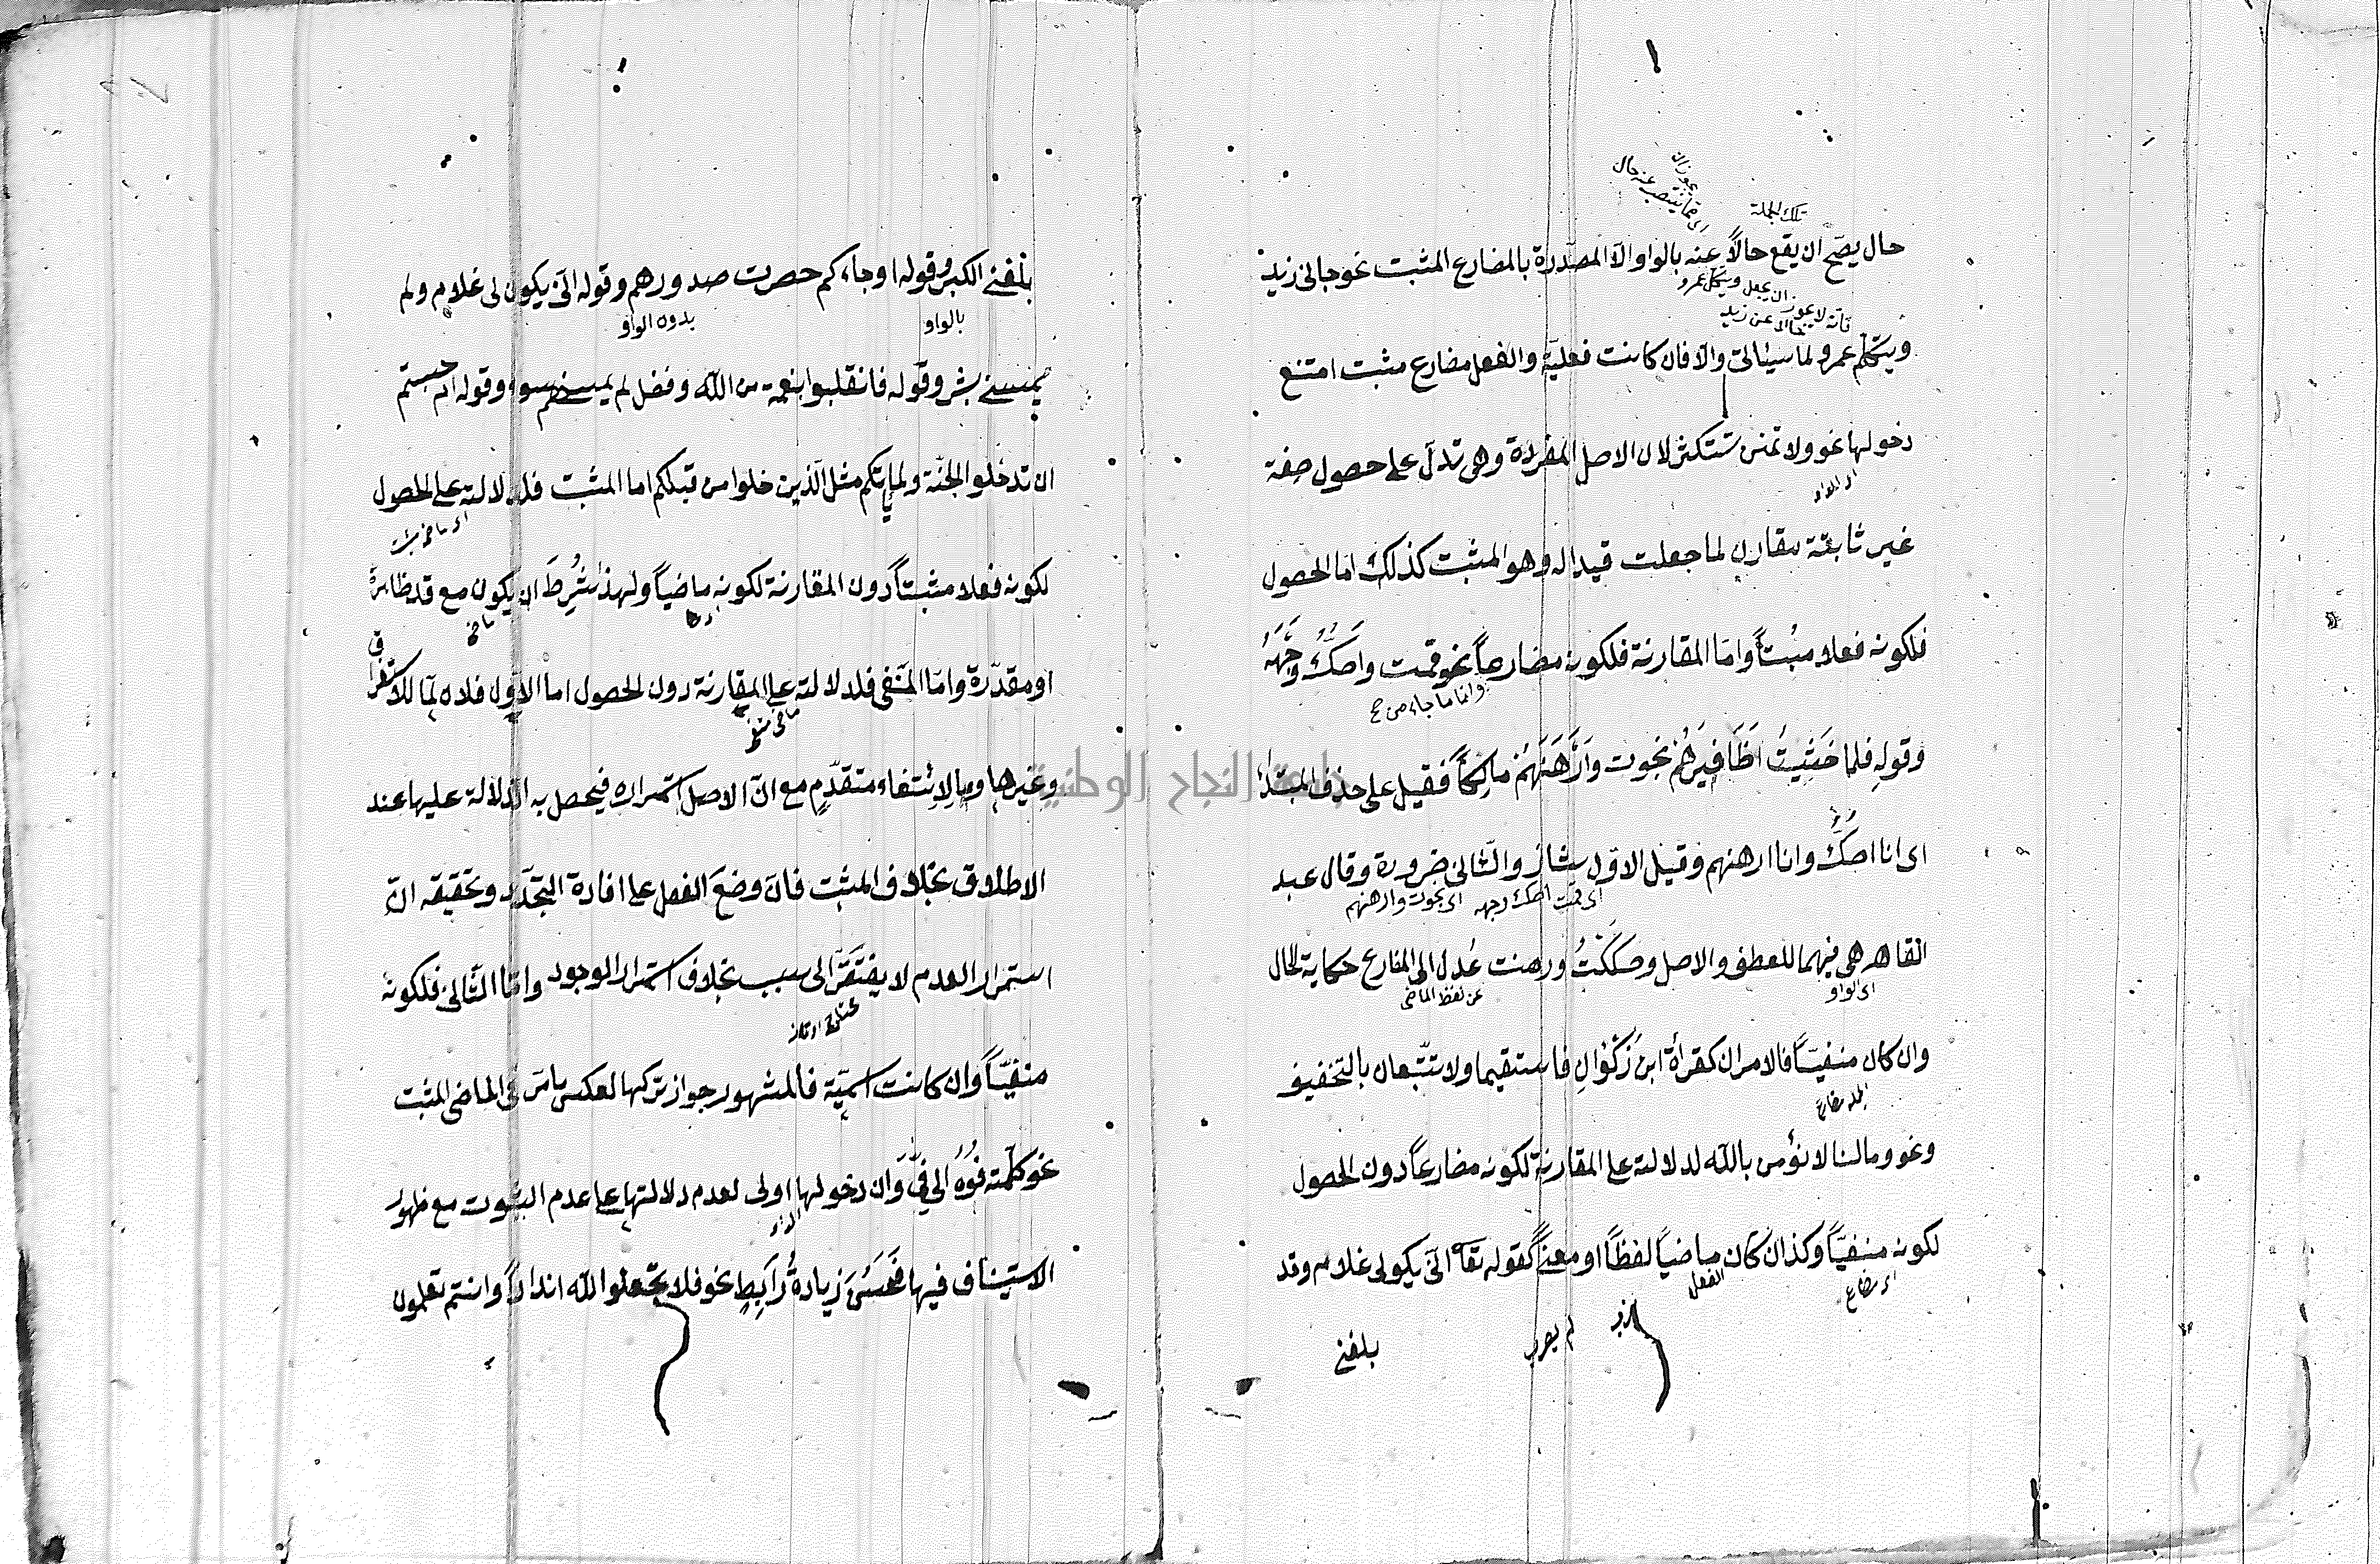 تلك الجملة
حال يصح ان يقع حالاً عنه بالواو الا المصدرة بالمضارع المثبت نحو جانى زيد
ويتكلم عمرو لما سيأتى والا فان كانت فعلية والفعل مضارع مثبت امتنع
دخولها نحو ولا تمنن تستكثر لان الاصل المفردة وهى تدل على حصول صفة
غير ثابتة مقارن لما جعلت قيدا له وهو المثبت كذلك اما الحصول
فلكونه فعلا مثبتاً واما المقارنة فلكونه مضارعاً نحو قمت واصكُّ وجهَهُ
وقوله فلما خَشِيتُ اَظَافِيرَهُم نجوت وَاَرْهَنَهُمْ مالِكاً فقيل على حذف المبتدأ
اى انا اصكُّ وانا ارهنهم وقيل الاول شاذ والثانى ضرورة وقال عبد
اى قمت اصك وجهه اى نجوت وارهنهم
القاهر هى فيهما للعطف والاصل وصككتُ ورهنت عُدل الى المضارع حكاية لحال
اى الواو
عن لفظ الماضى
وان كان منفيّاً فالامران كقرأة ابن ذكوانِ فاستقيما ولا تتّبعان بالتخفيف
ونحو ومالنا لا نؤمن بالله لدلالته على المقارنة لكونه مضارعاً دون الحصول
لكونه منفيّاً وكذا ان كان ماضياً لفظاً او معنىً كقوله تقا انّى يكو لى غلام وقد
اى مضارع
الفعل
بلغنى
بلغنى الكبر وقوله او جاءكم حصرت صدورهم وقوله انّى يكون لى غلام ولم
بالواو
بدون الواو
يمسسنى بشر وقوله فانقلبوا بنعمة من الله وفضل لم يمسسهم سوء وقوله ام حسبتم
ان تدخلوا الجنّة ولما يأتكم مثل الّذين خلوا من قبلكم اما المثبت فلدلالته على الحصول
لكونه فعلا مثبتاً دون المقارنة لكونه ماضياً ولهذا شُرِطَ ان يكون مع قد ظاهرة
او مقدّرة واما المنفى فلدلالته على المقارنة دون الحصول اما الاوّل فلان لمّا للاستغراق
وغيرها لانتفاء متقدّم مع انّ الاصل استمراره فيحصل به الدلالة عليها عند
الاطلاق بخلاف المثبت فانّ وضع الفعل على افادة التجدّد وتحقيقه انّ
استمرار العدم لا يفتقر الى سبب بخلاف استمرار الوجود وامّا الثّانى فلكونه
منفيّاً وان كانت اسميّة فالمشهور جواز تركها لعكس ما مرّ فى الماضى المثبت
نحو كلّمته فُوهُ الى فىّ وان دخولها اولى لعدم دلالتها على عدم الثبوت مع ظهور
الاستيناف فيها فحَسُنَ زيادةُ رابِطٍ نحو فلا تجعلوا لله انداداً وانتم تعلمون
جامعة النجاح الوطنية